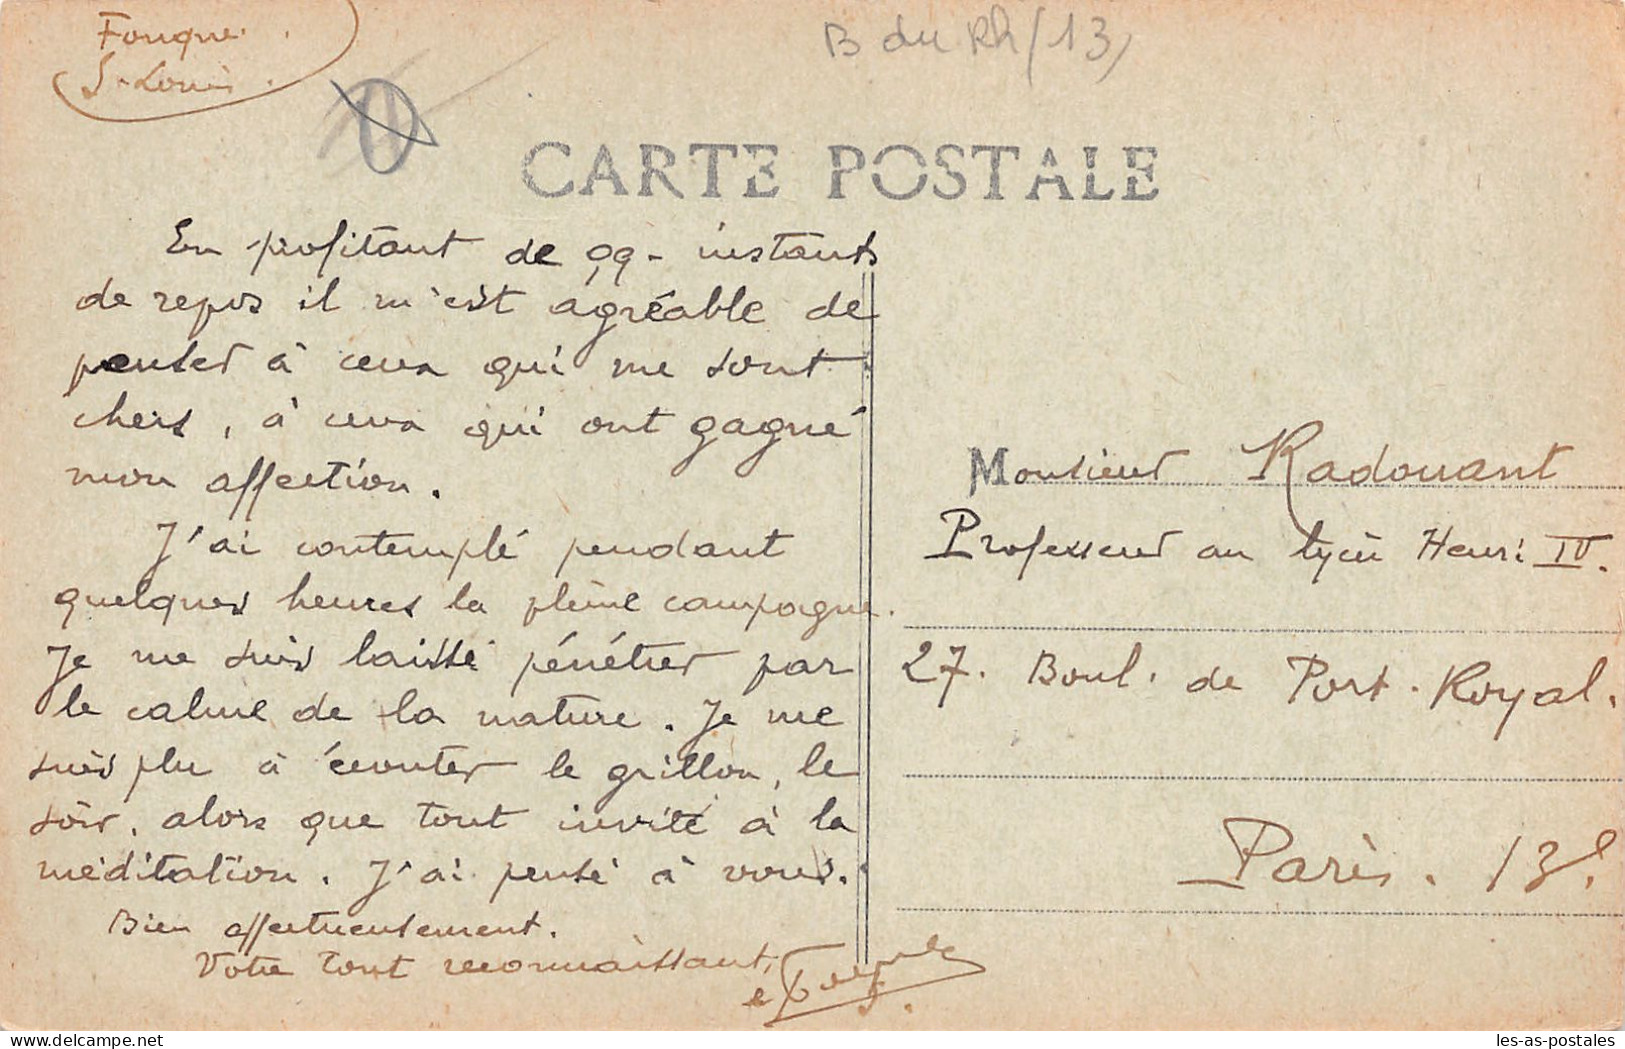 Fouque
St-Louis
B du Rh (13)
CARTE POSTALE
En profitant de qq. instants
de repos il m'est agréable de
penser à ceux qui me sont
chers, à ceux qui ont gagné
mon affection.
J'ai contemplé pendant
quelques heures la pleine campagne.
Je me suis laissé pénétrer par
le calme de la nature. Je me
suis plu à écouter le grillon, le
soir, alors que tout invite à la
méditation. J'ai pensé à vous.
Bien affectueusement.
Votre tout reconnaissant,
Monsieur Radouant
Professeur au lycée Henri IV.
27. Boul. de Port-Royal.
Paris. 13e.
delcampe.net
les-as-postales